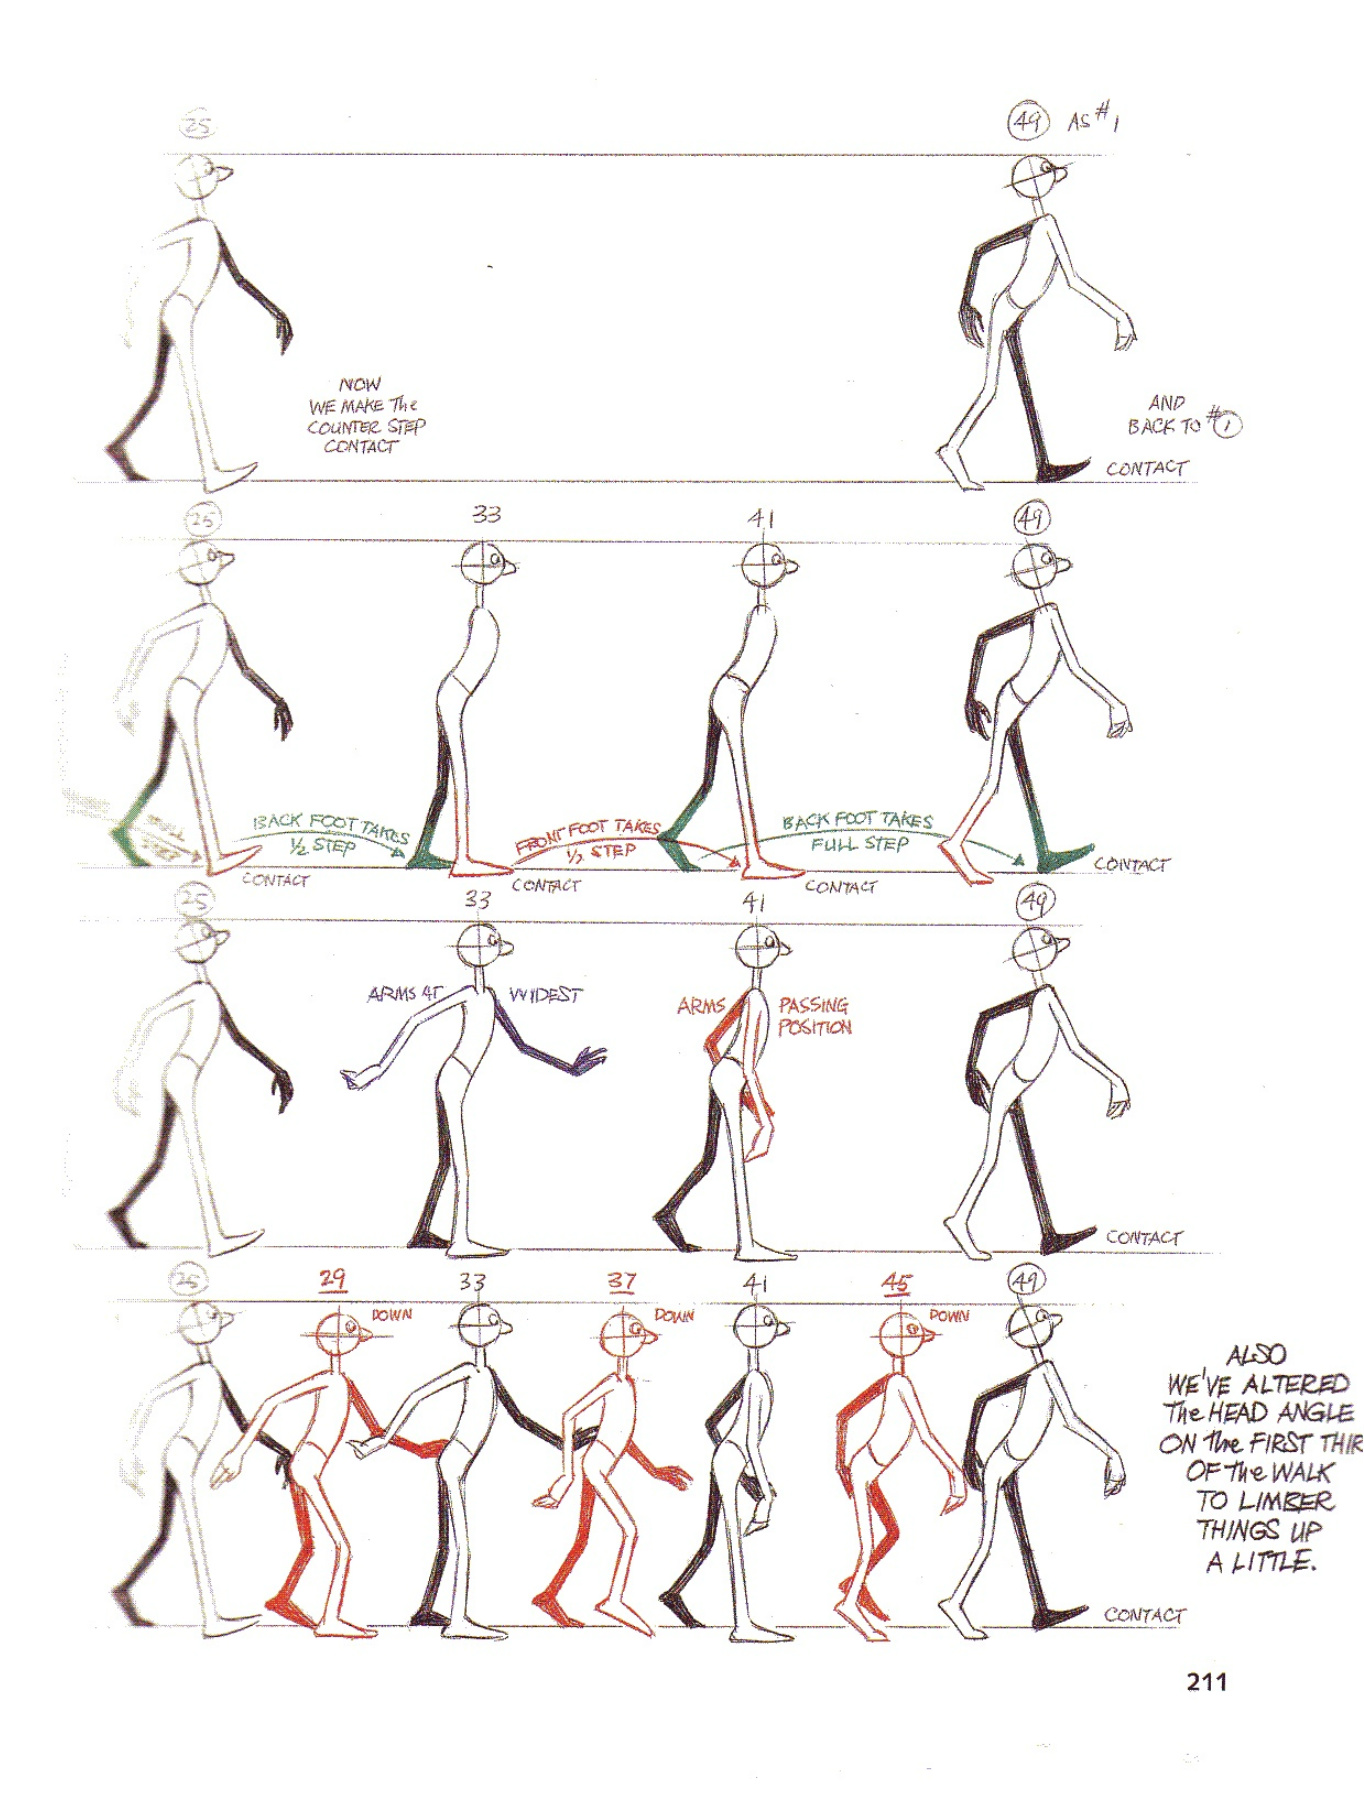 25
49 AS #1
NOW
WE MAKE The
COUNTER STEP
CONTACT
AND
BACK TO #1
CONTACT
25
33
41
49
BACK FOOT TAKES
½ STEP
FRONT FOOT TAKES
½ STEP
BACK FOOT TAKES
FULL STEP
CONTACT
CONTACT
CONTACT
CONTACT
25
33
41
49
ARMS AT WIDEST
ARMS PASSING
POSITION
CONTACT
25
29
33
37
41
45
49
DOWN
DOWN
DOWN
CONTACT
ALSO
WE'VE ALTERED
The HEAD ANGLE
ON The FIRST THIR
OF The WALK
TO LIMBER
THINGS UP
A LITTLE.
211